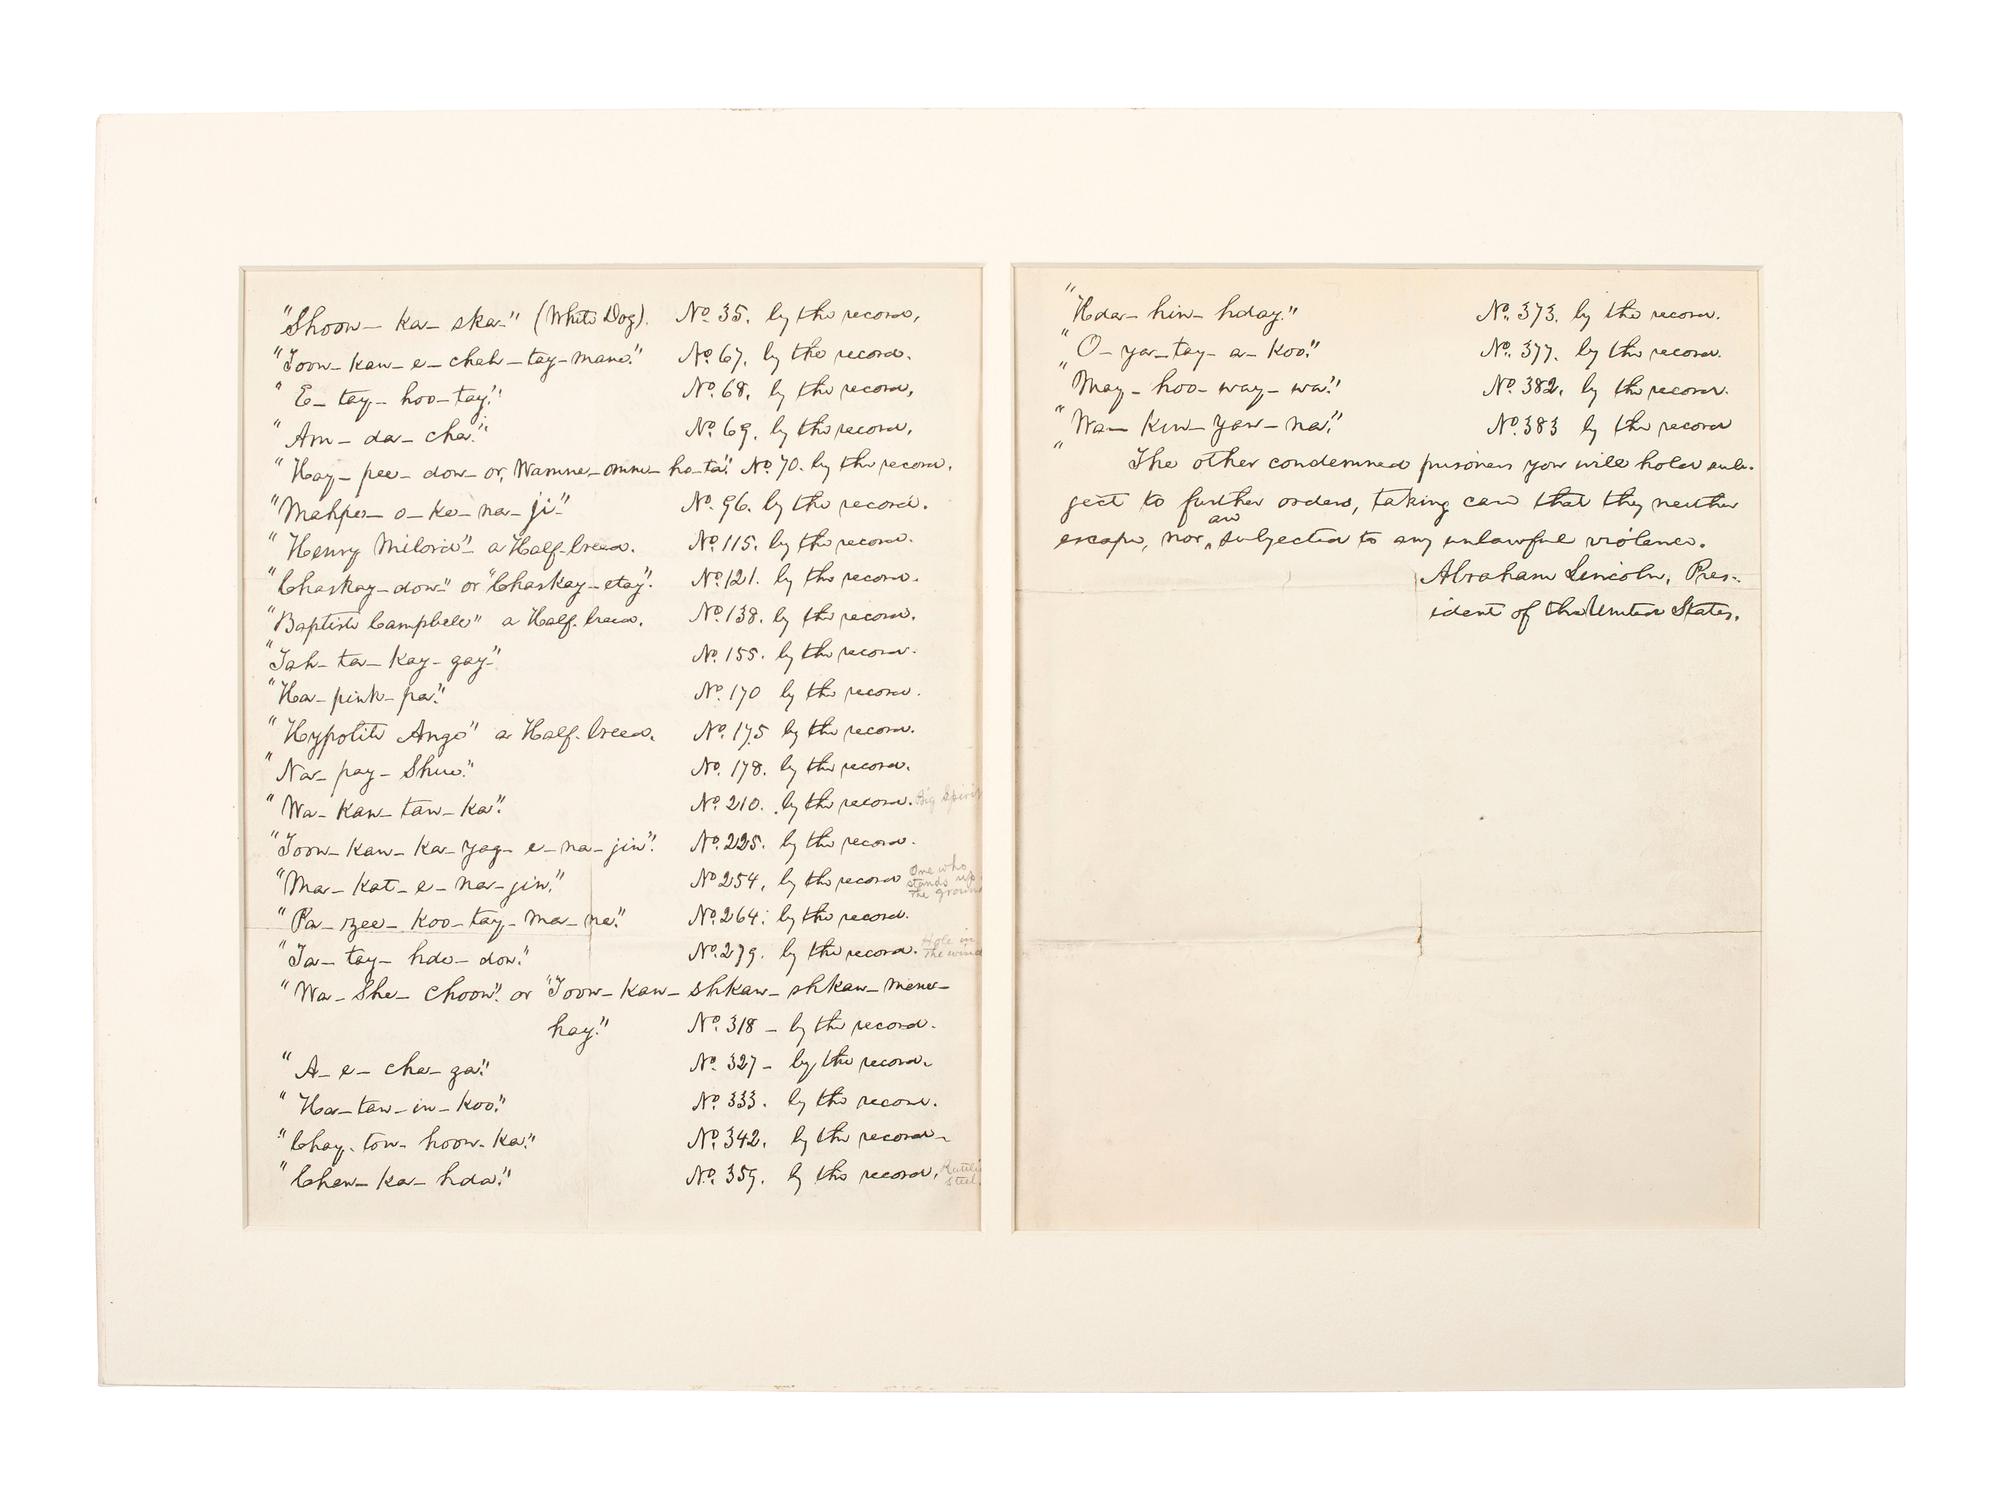 "Shoon-ka-ska-" (White Dog). No. 35. by the record,
"Toon-kan-e-chah-tay-mane." No. 67. by the record.
"E-tay-hoo-tay." No. 68. by the record,
"Am-da-cha." No. 69. by the record,
"Hay-pee-don- or, Wamne-omne-ho-ta." No. 70. by the record,
"Mahpe-o-ke-na-ji-" No. 96. by the record.
"Henry Milord"- a Half-breed. No. 115. by the record.
"Chaskay-don" or "Chaskay-etay". No. 121. by the record.
"Baptiste Campbell" a Half-breed. No. 138. by the record.
"Tah-ta-kay-gay-" No. 155. by the record.
"Ha-pink-pa." No. 170 by the record.
"Hypolite Ange" a Half-breed. No. 175 by the record.
"Na-pay-Shue." No. 178. by the record.
"Wa-kan-tan-ka." No. 210. by the record. Big Spirit
"Toon-kan-ka-yag-e-na-jin". No. 225. by the record.
"Ma-kat-e-na-jin." No. 254, by the record One who
stands up
the ground
"Pa-zee-koo-tay-ma-ne." No. 264: by the record.
"Ta-tay-hde-don." No. 279. by the record. Hole in
the wind
"Wa-She-choon". or "Toon-kan-shkan-shkan-mene-
hay." No. 318 - by the record.
"A-e-cha-ga." No. 327 - by the record.
"Ha-tan-in-koo." No. 333. by the record.
"Chay-ton-hoon-ka." No. 342. by the record-
"Chan-ka-hda." No. 359. by the record,
"Hda-hin-hday." No. 373. by the record.
"O-ya-tay-a-koo." No. 377. by the record.
"May-hoo-way-wa." No. 382. by the record.
"Wa-kin-yan-na." No. 383 by the record
" The other condemned prisoners you will hold sub-
ject to further orders, taking care that they neither
escape, nor are subjected to any unlawful violence.
Abraham Lincoln, Pres-
ident of the United States.